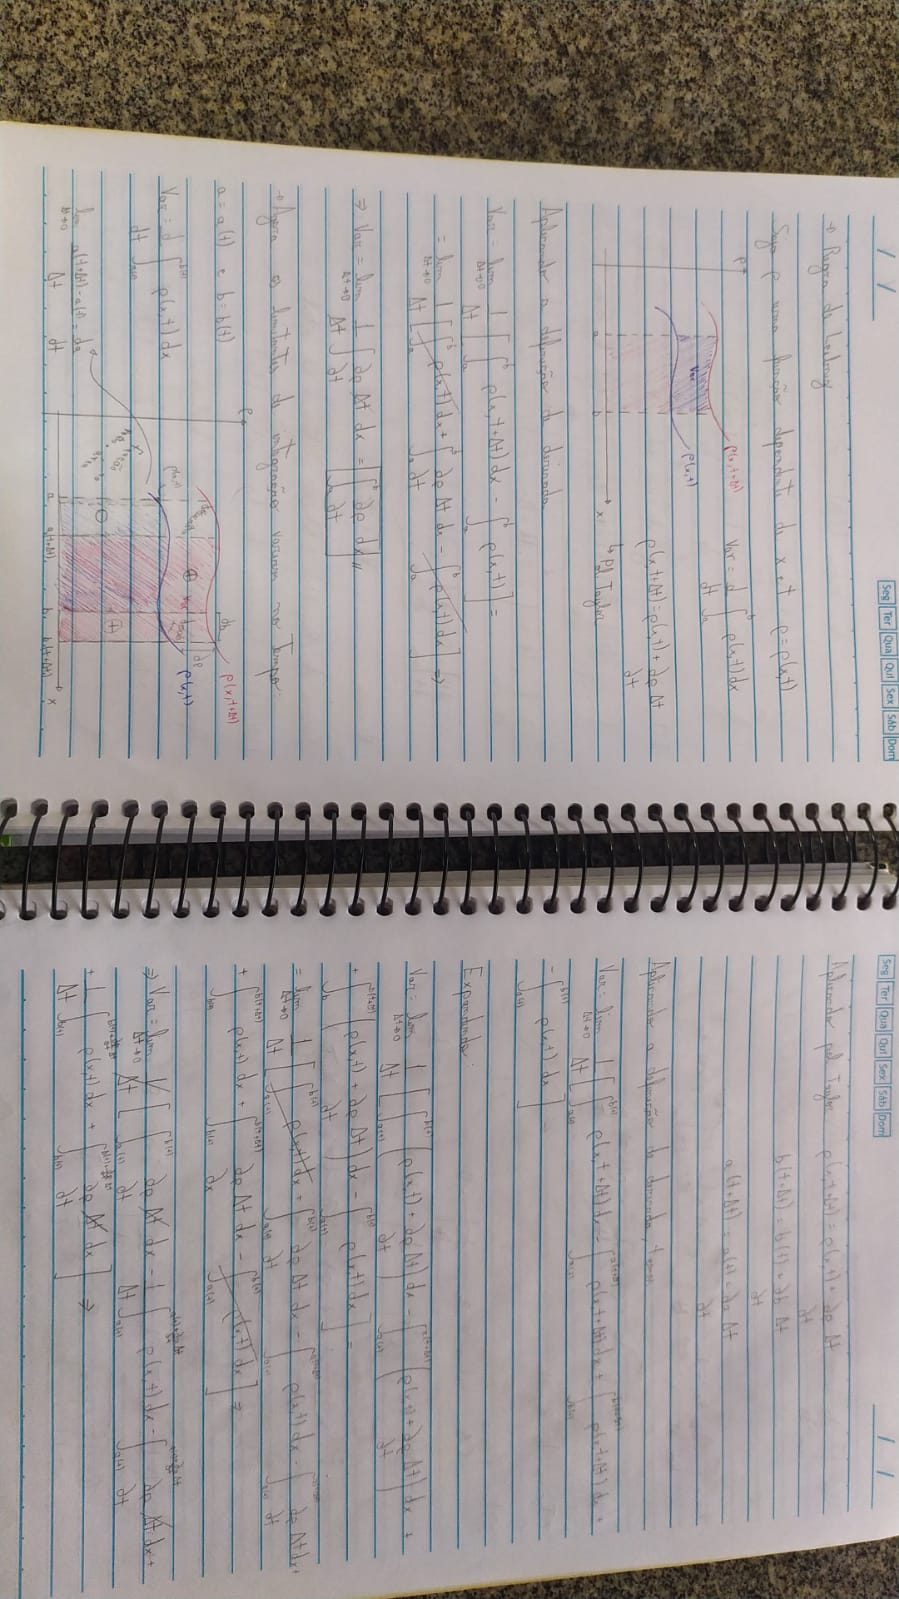 Seg Ter Qua Qui Sex Sáb Dom
→ Regra de Leibniz
Seja ρ uma função dependente de x e t ρ=ρ(x,t)
ρ
ρ(x,t+Δt)
Var
ρ(x,t)
a b x
Var = d/dt ∫_a^b ρ(x,t)dx
ρ(x,t+Δt)=ρ(x,t)+∂ρ/∂t Δt
↳ p/ Taylor
Aplicando a definição de derivada
Var = lim Δt→0 1/Δt [∫_a^b ρ(x,t+Δt)dx - ∫_a^b ρ(x,t)] =
= lim Δt→0 1/Δt [∫_a^b ρ(x,t)dx + ∫_a^b ∂ρ/∂t Δt dx - ∫_a^b ρ(x,t)dx] ⇒
⇒ Var = lim Δt→0 1/Δt ∫ ∂ρ/∂t Δt dx = ∫_a^b ∂ρ/∂t dx //
→ Agora os limitantes de integração variam no tempo
a = a(t) e b = b(t)
Var = d/dt ∫_a(t)^b(t) ρ(x,t)dx
lim Δt→0 a(t+Δt)-a(t)/Δt = da/dt
ρ
ρ(x,t+Δt)
ρ(x,t)
a a(t+Δt) b b(t+Δt) x
Seg Ter Qua Qui Sex Sáb Dom
Aplicando p/ Taylor ρ(x,t+Δt) = ρ(x,t) + ∂ρ/∂t Δt
b(t+Δt) = b(t) + ∂b/∂t Δt
a(t+Δt) = a(t) + ∂a/∂t Δt
Aplicando a definição de derivada, temos
Var = lim Δt→0 1/Δt [∫_a(t)^b(t) ρ(x,t+Δt)dx - ∫_a(t)^a(t+Δt) ρ(x,t+Δt)dx + ∫_b(t)^b(t+Δt) ρ(x,t+Δt)dx +
- ∫_a(t)^b(t) ρ(x,t)dx]
Expandindo:
Var = lim Δt→0 1/Δt [∫_a(t)^b(t) (ρ(x,t) + ∂ρ/∂t Δt)dx - ∫_a(t)^a(t+Δt) (ρ(x,t) + ∂ρ/∂t Δt)dx +
+ ∫_b (ρ(x,t) + ∂ρ/∂t Δt)dx - ∫_a(t)^b(t) ρ(x,t)dx] =
= lim Δt→0 1/Δt [∫_a(t)^b(t) ρ(x,t)dx + ∫_a(t)^b(t) ∂ρ/∂t Δt dx - ∫ ρ(x,t)dx - ∫ ∂ρ/∂t Δt dx +
+ ∫_b(t)^b(t+Δt) ρ(x,t)dx + ∫_b(t)^b(t+Δt) ∂ρ/∂x Δt dx - ∫_a(t)^b(t) ρ(x,t)dx] ⇒
⇒ Var = lim Δt→0 1/Δt [∫_a(t)^b(t) ∂ρ/∂t Δt dx - 1/Δt ∫_a(t) ρ(x,t)dx - ∫_a(t) ∂ρ/∂t Δt dx +
+ 1/Δt ∫_b(t) ρ(x,t)dx + ∫_b(t) ∂ρ/∂t Δt dx] ⇒